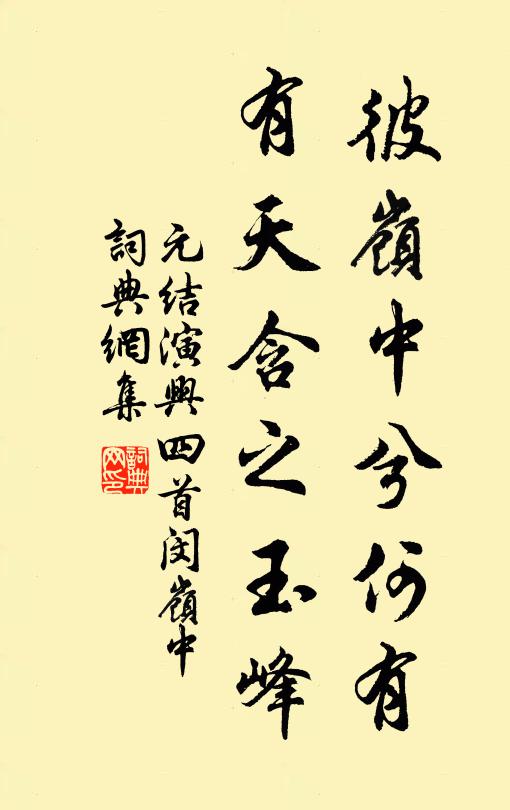 彼嶺中兮何有
有天含之玉峰
元结演興四首闵嶺中
詞典網集
詞典網印